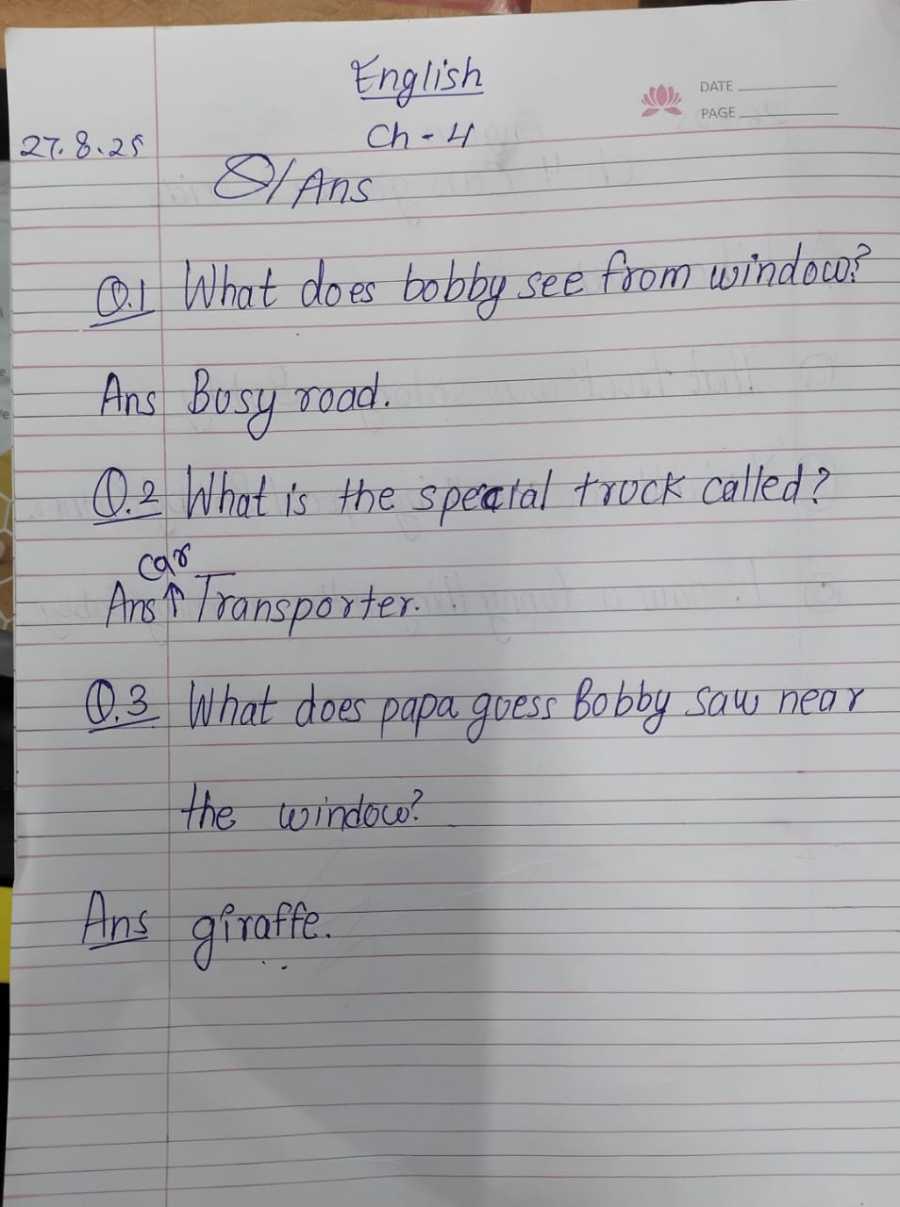 English
DATE
PAGE
27.8.25
Ch - 4
Q/Ans
Q.1 What does bobby see from window?
Ans Busy road.
Q.2 What is the special truck called?
car
Ans ↑ Transporter.
Q.3 What does papa guess Bobby saw near
the window?
Ans giraffe.